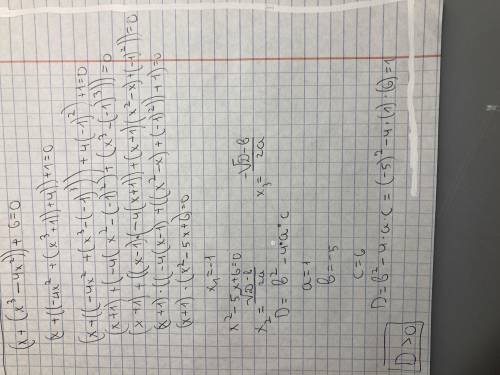 (x + (x³ - 4x²)) + 6 = 0
(x + ((-4x² + (x³ + 1)) + 4)) + 1 = 0
(x + ((-4x² + (x³ - (-1)³)) + 4(-1)²) + 1 = 0
(x+1) + (-4(x² - (-1)²) + (x³ - (-1)³)) = 0
(x+1) + ((x-1)(-4(x+1)) + (x+1)(x² - x) + (-1)²)) = 0
(x+1) · ((-4(x-1) + ((x² - x) + (-1)²)) + 1) = 0
(x+1) · (x² - 5x + 6) = 0
x₁ = -1
x² - 5x + 6 = 0
x₂ = √D - b / 2a x₃ = -√D - b / 2a
D = b² - 4*a*c
a = 1
b = -5
c = 6
D = b² - 4·a·c = (-5)² - 4·(1)·(6) = 1
D > 0